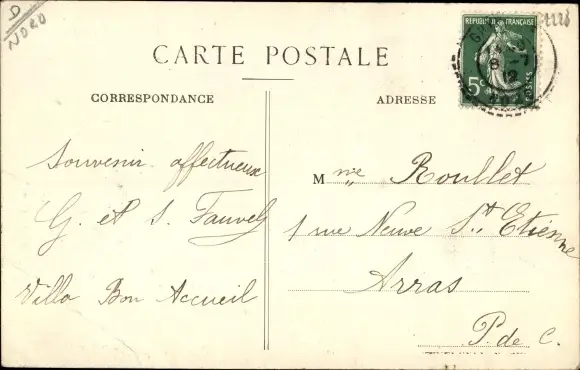 D
NORD
CARTE POSTALE
CORRESPONDANCE
ADRESSE
REPUBLIQUE FRANÇAISE
5c
POSTES
8 -7
12
Souvenir affectueux
G. et S. Fauvel
Villa Bon Accueil
Mme Roullet
1 rue Neuve St Etienne
Arras
P. de C.